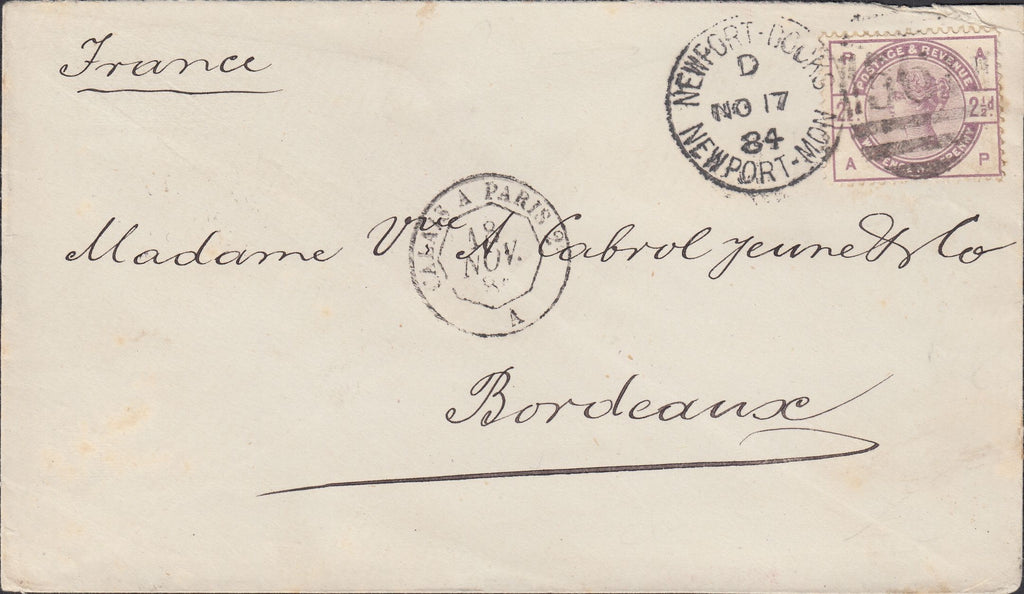 France
NEWPORT-DOCKS
D
NO 17
84
NEWPORT-MON
POSTAGE & REVENUE
P A
2½d 2½d
A P
CALAIS A PARIS 2
18
NOV.
A
Madame Vve A Cabrol jeune & Co
Bordeaux